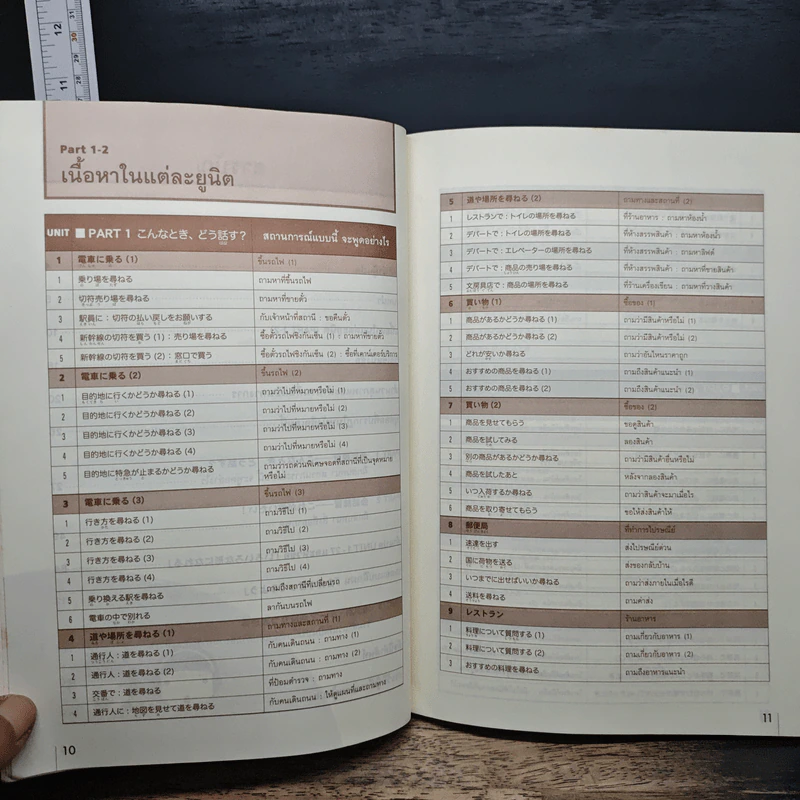 12
30
31
11
28
Part 1-2
เนื้อหาในแต่ละยูนิต
UNIT ■ PART 1 こんなとき、どう話す? สถานการณ์แบบนี้ จะพูดอย่างไร
1 電車に乗る (1) ขึ้นรถไฟ (1)
1 乗り場を尋ねる ถามหาที่ขึ้นรถไฟ
2 切符売り場を尋ねる ถามหาที่ขายตั๋ว
3 駅員に:切符の払い戻しをお願いする กับเจ้าหน้าที่สถานี : ขอคืนตั๋ว
4 新幹線の切符を買う (1):売り場を尋ねる ซื้อตั๋วรถไฟชิงกันเซ็น (1) : ถามหาที่ขายตั๋ว
5 新幹線の切符を買う (2):窓口で買う ซื้อตั๋วรถไฟชิงกันเซ็น (2) : ซื้อที่เคาน์เตอร์บริการ
2 電車に乗る (2) ขึ้นรถไฟ (2)
1 目的地に行くかどうか尋ねる (1) ถามว่าไปที่หมายหรือไม่ (1)
2 目的地に行くかどうか尋ねる (2) ถามว่าไปที่หมายหรือไม่ (2)
3 目的地に行くかどうか尋ねる (3) ถามว่าไปที่หมายหรือไม่ (3)
4 目的地に行くかどうか尋ねる (4) ถามว่าไปที่หมายหรือไม่ (4)
5 目的地に特急が止まるかどうか尋ねる ถามว่ารถด่วนพิเศษจอดที่สถานีที่เป็นจุดหมาย
หรือไม่
3 電車に乗る (3) ขึ้นรถไฟ (3)
1 行き方を尋ねる (1) ถามวิธีไป (1)
2 行き方を尋ねる (2) ถามวิธีไป (2)
3 行き方を尋ねる (3) ถามวิธีไป (3)
4 行き方を尋ねる (4) ถามวิธีไป (4)
5 乗り換える駅を尋ねる ถามถึงสถานีที่เปลี่ยนรถ
6 電車の中で別れる ลากันบนรถไฟ
4 道や場所を尋ねる (1) ถามทางและสถานที่ (1)
1 通行人:道を尋ねる (1) กับคนเดินถนน : ถามทาง (1)
2 通行人:道を尋ねる (2) กับคนเดินถนน : ถามทาง (2)
3 交番で:道を尋ねる ที่ป้อมตำรวจ : ถามทาง
4 通行人に:地図を見せて道を尋ねる กับคนเดินถนน : ให้ดูแผนที่และถามทาง
10
5 道や場所を尋ねる (2) ถามทางและสถานที่ (2)
1 レストランで:トイレの場所を尋ねる ที่ร้านอาหาร : ถามหาห้องน้ำ
2 デパートで:トイレの場所を尋ねる ที่ห้างสรรพสินค้า : ถามหาห้องน้ำ
3 デパートで:エレベーターの場所を尋ねる ที่ห้างสรรพสินค้า : ถามหาลิฟต์
4 デパートで:商品の売り場を尋ねる ที่ห้างสรรพสินค้า : ถามหาที่ขายสินค้า
5 文房具店で:商品の場所を尋ねる ที่ร้านเครื่องเขียน : ถามหาที่วางสินค้า
6 買い物 (1) ซื้อของ (1)
1 商品があるかどうか尋ねる (1) ถามว่ามีสินค้าหรือไม่ (1)
2 商品があるかどうか尋ねる (2) ถามว่ามีสินค้าหรือไม่ (2)
3 どれが安いか尋ねる ถามว่าอันไหนราคาถูก
4 おすすめの商品を尋ねる (1) ถามถึงสินค้าแนะนำ (1)
5 おすすめの商品を尋ねる (2) ถามถึงสินค้าแนะนำ (2)
7 買い物 (2) ซื้อของ (2)
1 商品を見せてもらう ขอดูสินค้า
2 商品を試してみる ลองสินค้า
3 別の商品があるかどうか尋ねる ถามว่ามีสินค้าอื่นหรือไม่
4 商品を試したあと หลังจากลองสินค้า
5 いつ入荷するか尋ねる ถามว่าสินค้าจะมาเมื่อไร
6 商品を取り寄せてもらう ขอให้ส่งสินค้าให้
8 郵便局 ที่ทำการไปรษณีย์
1 速達を出す ส่งไปรษณีย์ด่วน
2 国に荷物を送る ส่งของกลับบ้าน
3 いつまでに出せばいいか尋ねる ถามว่าส่งภายในเมื่อไรดี
4 送料を尋ねる ถามค่าส่ง
9 レストラン ร้านอาหาร
1 料理について質問する (1) ถามเกี่ยวกับอาหาร (1)
2 料理について質問する (2) ถามเกี่ยวกับอาหาร (2)
3 おすすめの料理を尋ねる ถามถึงอาหารแนะนำ
11